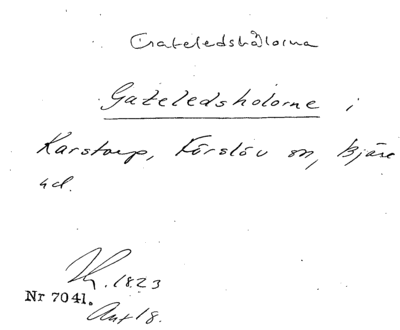 Gateledshålorna
Gateledsholorne i
Karstorp, Förslöv sn, Bjäre
hd.
1823
Nr 7041.
Akt 18.